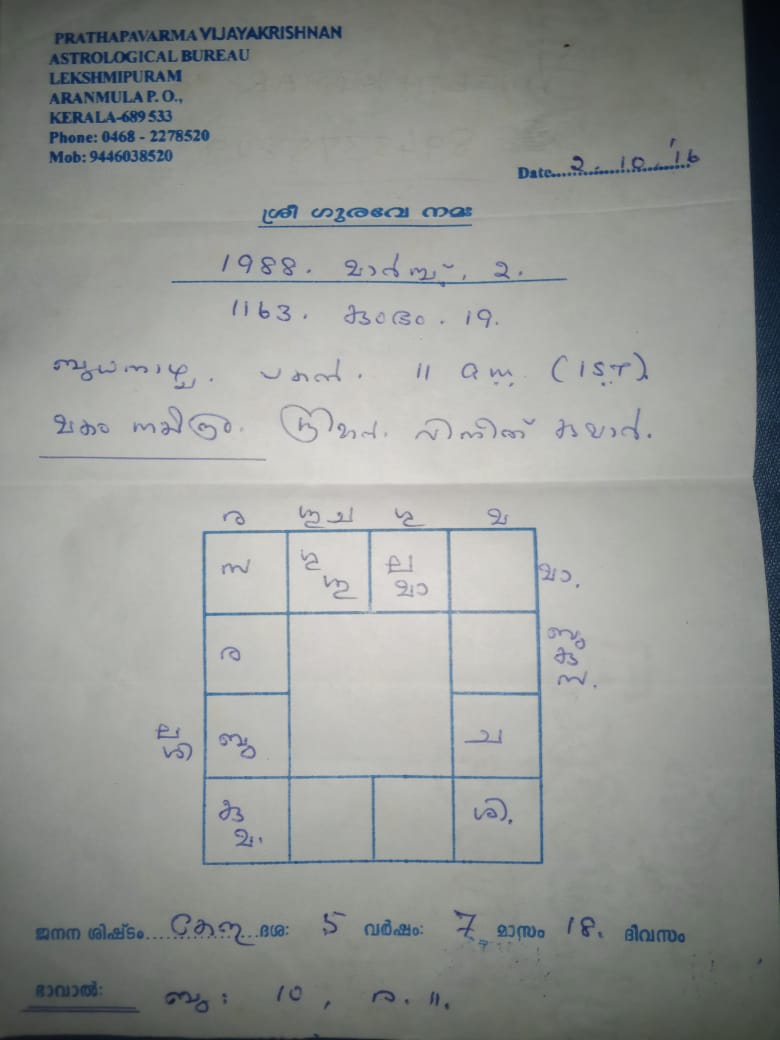 PRATHAPAVARMA VIJAYAKRISHNAN
ASTROLOGICAL BUREAU
LEKSHMIPURAM
ARANMULA P. O.,
KERALA-689 533
Phone: 0468 - 2278520
Mob: 9446038520
Date 2. 10. '16
ശ്രീ ഗുരവേ നമഃ
1988. മാർച്ച്. 2.
1163. കുംഭം. 19.
ബുധനാഴ്ച. പകൽ. 11 a.m. (IST)
മകം നക്ഷത്രം. വിനീത് കുമാർ.
ര ശു ച ഗു മ
സ ഗു ശു ല മാ മാ.
ര ബു കു സ.
ല ശി ബു ച
കു മ. ശി.
ജനന ശിഷ്ടം കേതു ദശ: 5 വർഷം: 7 മാസം 18. ദിവസം
ഭാവാൽ: ബു: 10, ര. 11.